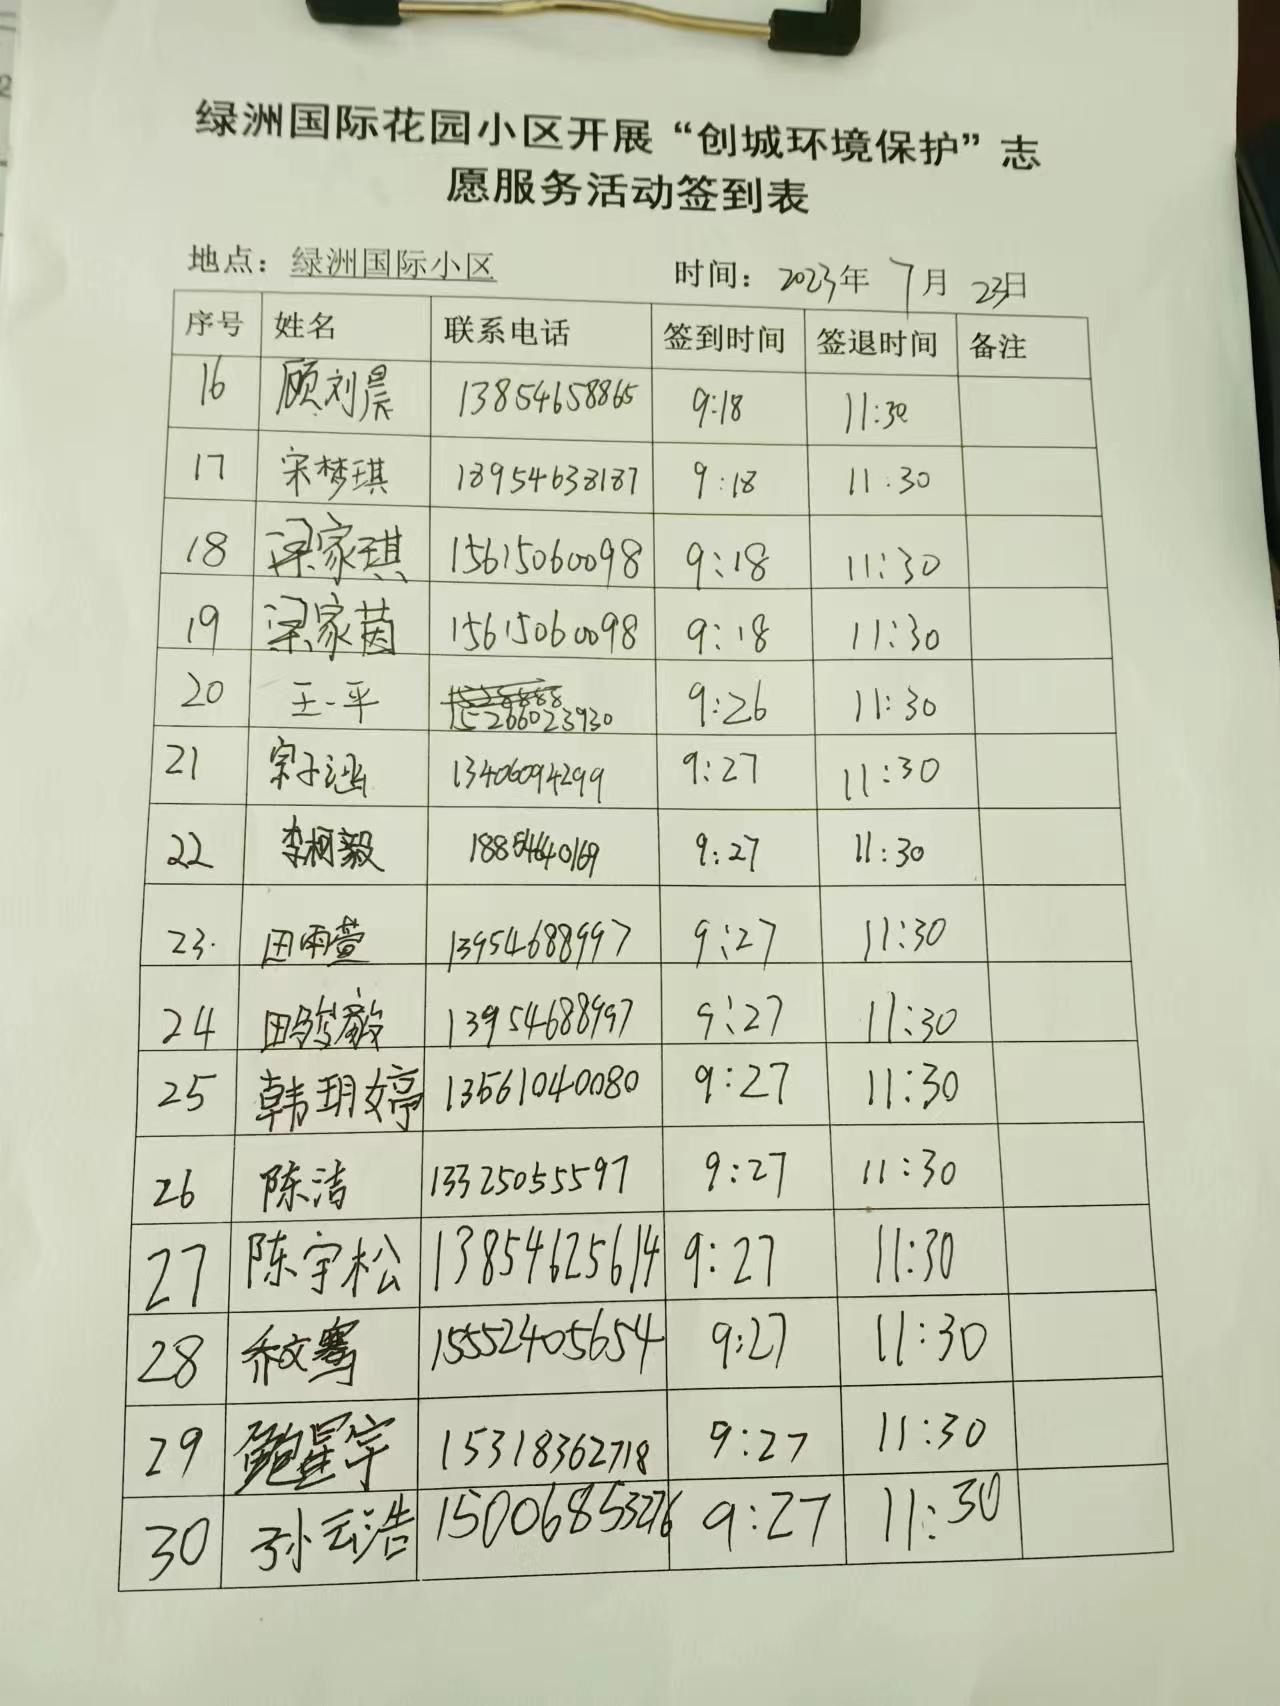 绿洲国际花园小区开展“创城环境保护”志
愿服务活动签到表
地点：绿洲国际小区 时间：2023年 7月 23日
序号 姓名 联系电话 签到时间 签退时间 备注
16 顾刘晨 13854658865 9:18 11:30
17 宋梦琪 18954638187 9:18 11:30
18 梁家琪 15615060098 9:18 11:30
19 梁家茵 15615060098 9:18 11:30
20 王一平 15266023930 9:26 11:30
21 宗子涵 13406094299 9:27 11:30
22 李柯毅 18854640169 9:27 11:30
23. 田雨萱 13954688997 9:27 11:30
24 田骏毅 13954688997 9:27 11:30
25 韩玥婷 13561040080 9:27 11:30
26 陈洁 13325055597 9:27 11:30
27 陈宇松 13854625614 9:27 11:30
28 乔文骞 15552405654 9:27 11:30
29 鲍星宇 15318362718 9:27 11:30
30 孙云浩 15006853276 9:27 11:30